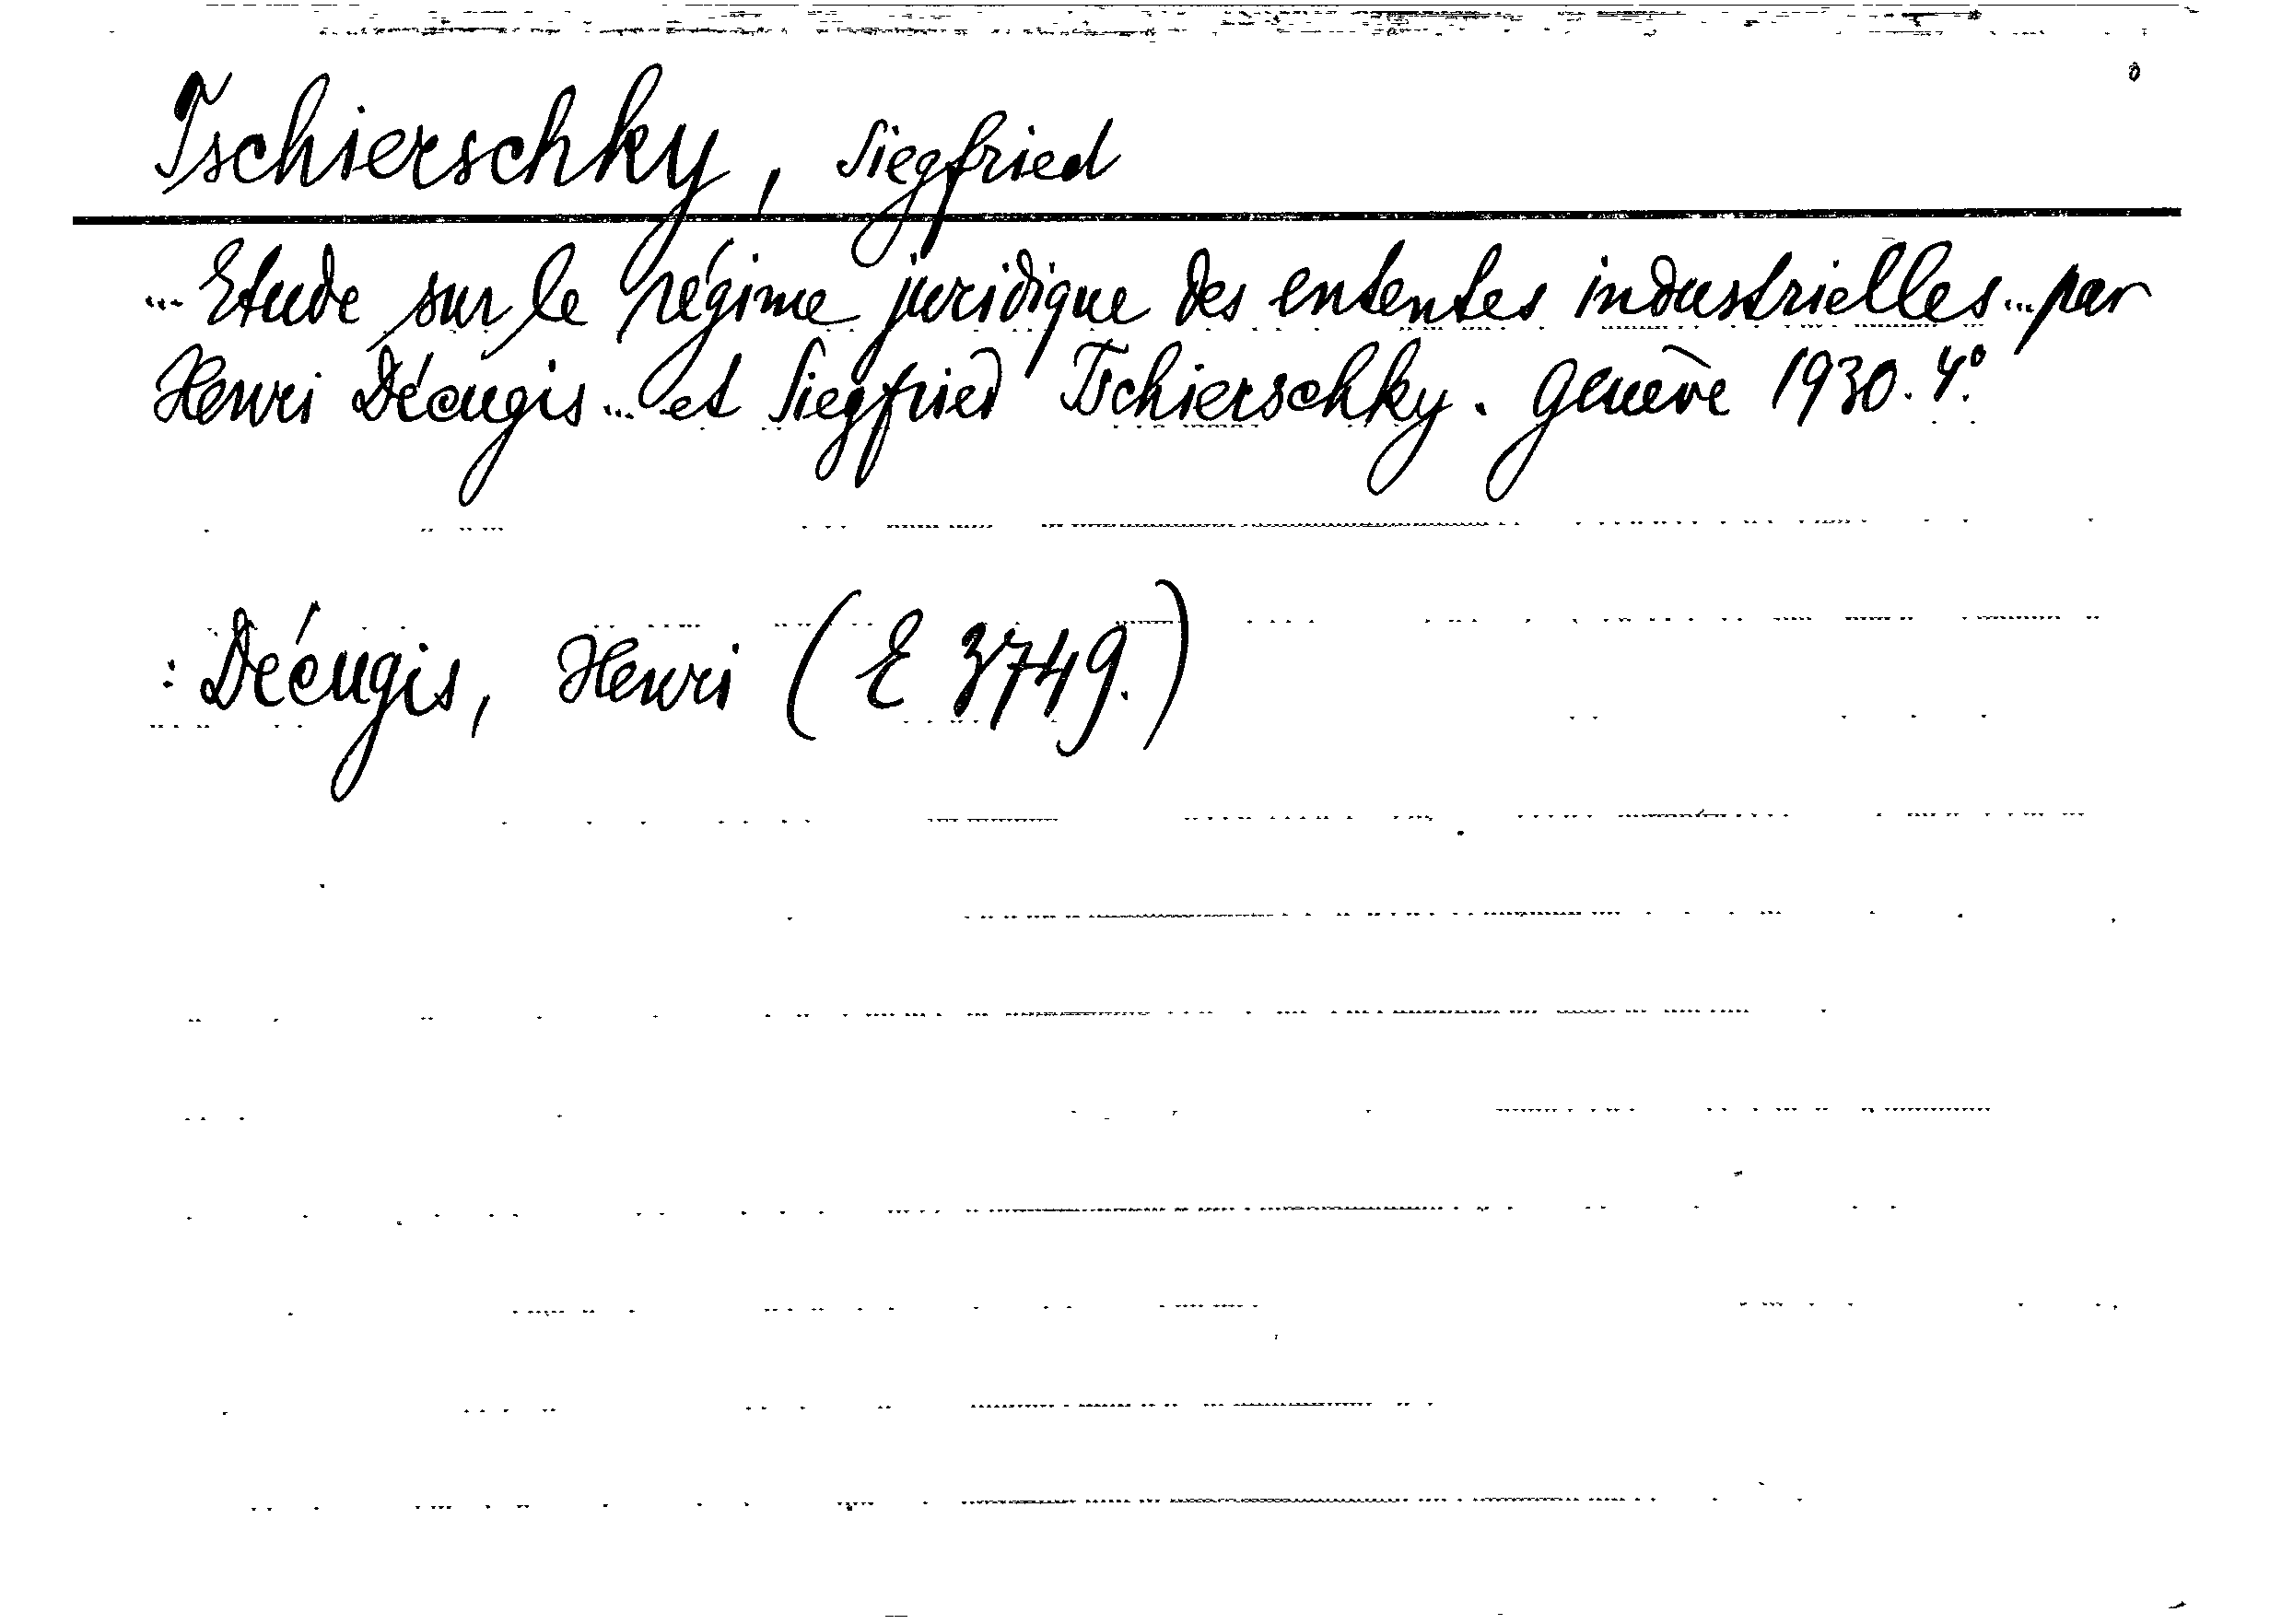 Tschierschky, Siegfried
... Etude sur le régime juridique des ententes industrielles ... par
Henri Décugis ... et Siegfried Tschierschky. Genève 1930. 4°.
: Décugis, Henri (E 3749.)